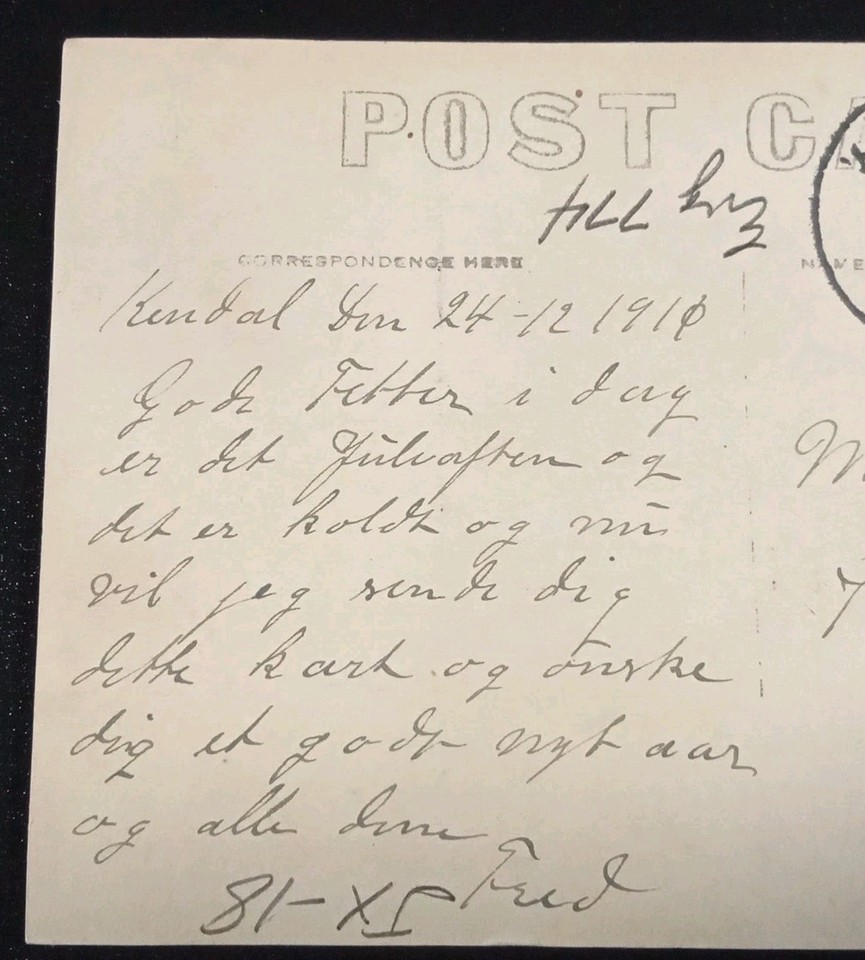 POST CA
till
CORRESPONDENCE HERE
NAME
Kendal den 24-12 1910
Gode Fetter i dag
er det Juleaften og
det er koldt og nu
vil jeg sende dig
dette kart og ønske
dig et godt nyt aar
og alle dine
Fred
81-XI